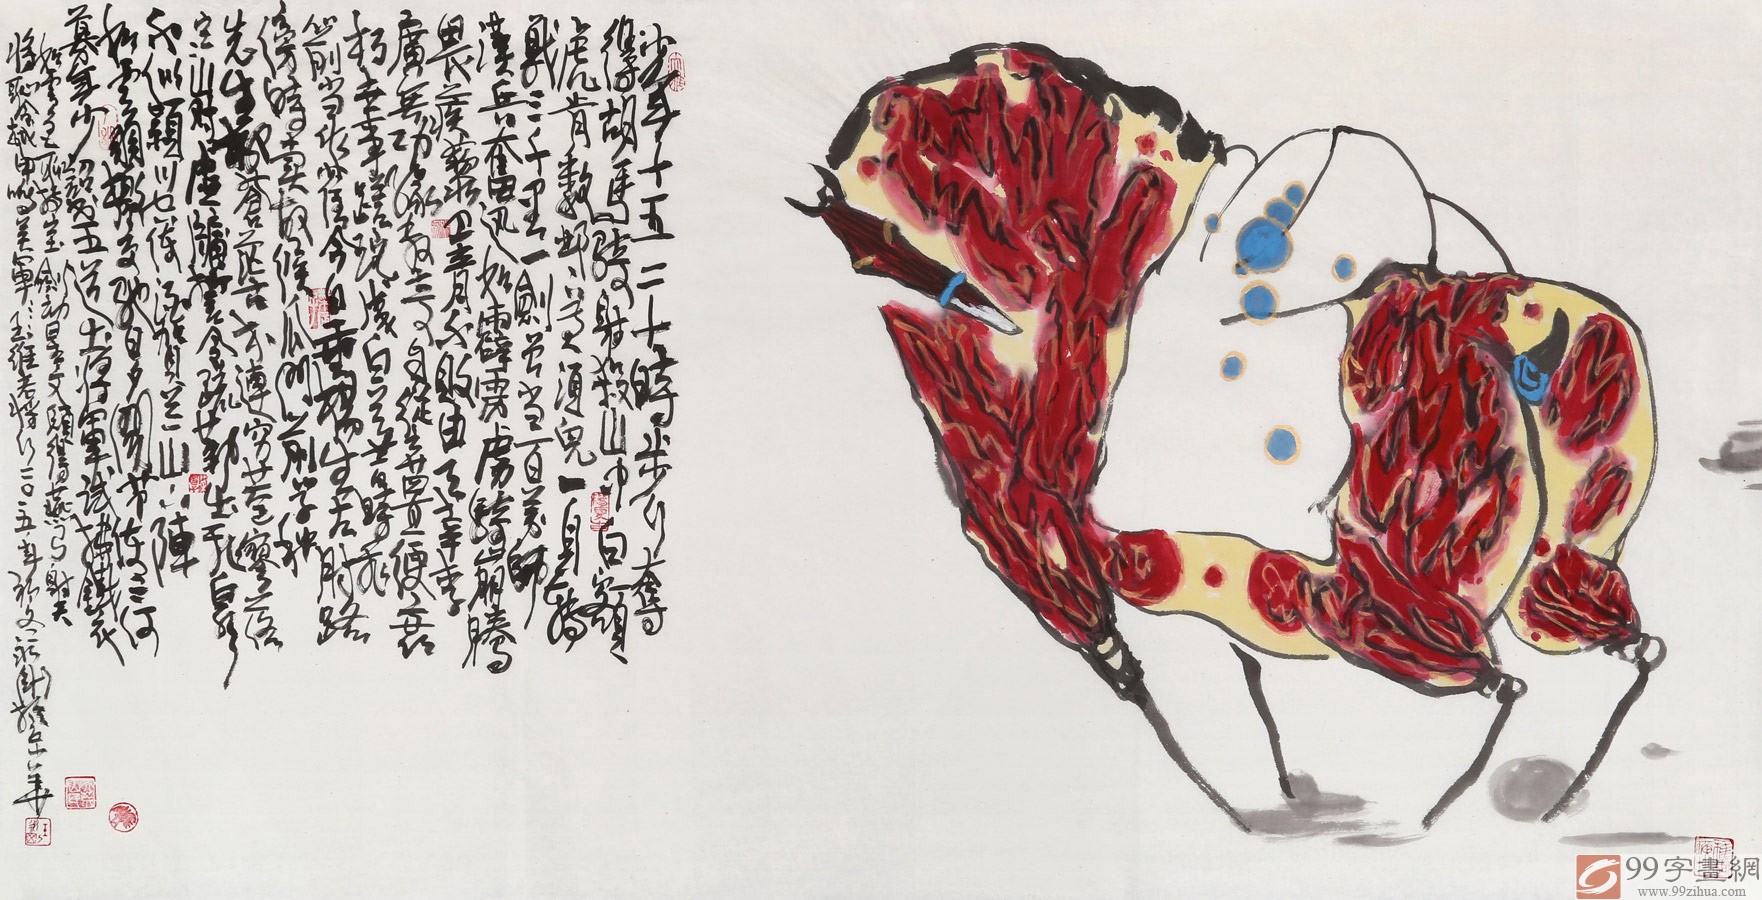 少年十五二十時步行奪
得胡馬騎射殺山中白額
虎肯數鄴下黃須兒一身轉
戰三千里一劍曾當百萬師
漢兵奮迅如霹靂虜騎崩騰
畏蒺藜衛青不敗由天幸李
廣無功緣數奇自從棄置便衰
朽世事蹉跎成白首昔時飛
箭今日垂楊生左肘路
傍時賣故侯瓜門前學種
先生柳蒼茫古木連窮巷寥落
寒山對虛牖誓令疏勒出飛泉
不似潁川空使酒賀蘭山下陣
如雲羽檄交馳日夕聞節使三河
募年少詔書五道出將軍試拂鐵衣
如雪色聊持寶劍動星文願得燕弓射天
將恥令越甲鳴吾軍王維老將行二〇一五年
99字畫網
www.99zihua.com